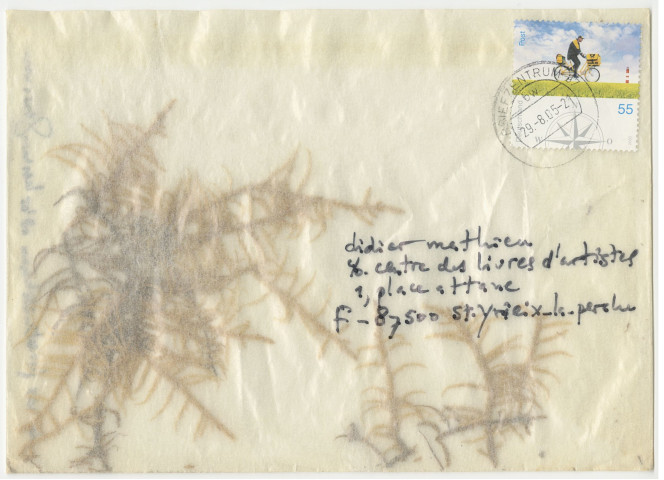 Post
55
BRIEFZENTRUM
29.-8.05-21
didier mathieu
℅. centre des livres d'artistes
1, place attane
F - 87500 St. Yrieix-la-perche